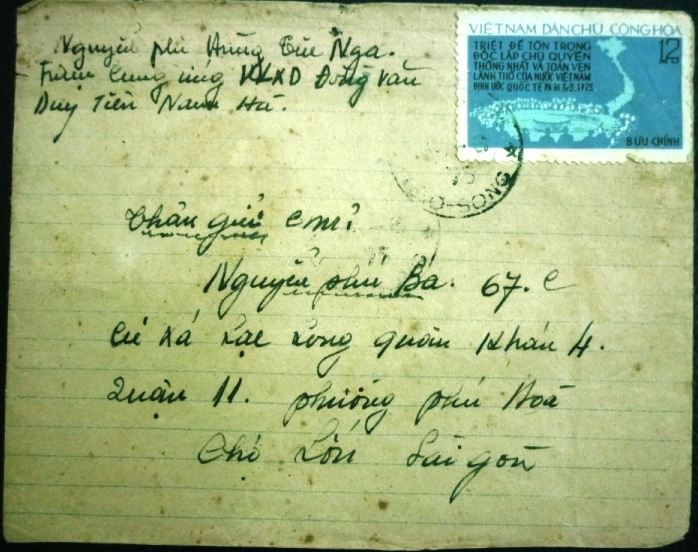 Nguyễn phú Hùng Tuệ Nga.
Trạm Cung ứng VLXD Đồng Văn
Duy Tiên Nam Hà.
VIỆT NAM DÂN CHỦ CỘNG HÒA
TRIỆT ĐỂ TÔN TRỌNG
ĐỘC LẬP CHỦ QUYỀN
THỐNG NHẤT VÀ TOÀN VẸN
LÃNH THỔ CỦA NƯỚC VIỆT NAM
ĐỊNH ƯỚC QUỐC TẾ PA RI 2.3.1973
12 xu
BƯU CHÍNH
75
Thân gửi em:
Nguyễn phú Bá. 67.C
Cư xá Lạc Long quân Khấn 4.
Quận 11. phường phú Hoà
Chợ Lớn Sài gòn